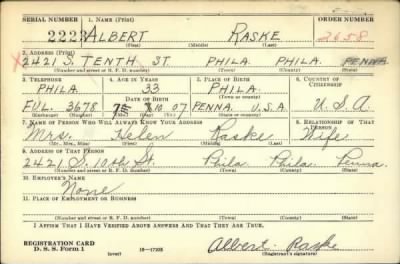 SERIAL NUMBER 1. NAME (Print) ORDER NUMBER
2223 ALBERT RASKE 2658
(First) (Middle) (Last)
2. ADDRESS (Print)
2421 S. TENTH ST. PHILA. PHILA. PENNA
(Number and street or R. F. D. number) (Town) (County) (State)
3. TELEPHONE 4. AGE IN YEARS 5. PLACE OF BIRTH 6. COUNTRY OF CITIZENSHIP
PHILA. 33 PHILA.
DATE OF BIRTH (Town or county)
FUL. 3678 10 07 PENNA. U.S.A U.S.A.
(Exchange) (Number) (Mo.) (Day) (Yr.) (State or country)
7. NAME OF PERSON WHO WILL ALWAYS KNOW YOUR ADDRESS 8. RELATIONSHIP OF THAT PERSON
Mrs. Helen Raske Wife
(Mr., Mrs., Miss) (First) (Middle) (Last)
9. ADDRESS OF THAT PERSON
2421 S. 10th St. Phila. Phila. Penna.
(Number and street or R. F. D. number) (Town) (County) (State)
10. EMPLOYER'S NAME
None
11. PLACE OF EMPLOYMENT OR BUSINESS
(Number and street or R. F. D. number) (Town) (County) (State)
I AFFIRM THAT I HAVE VERIFIED ABOVE ANSWERS AND THAT THEY ARE TRUE.
REGISTRATION CARD
D. S. S. Form 1 (over) 16—17105 Albert Raske
(Registrant's signature)